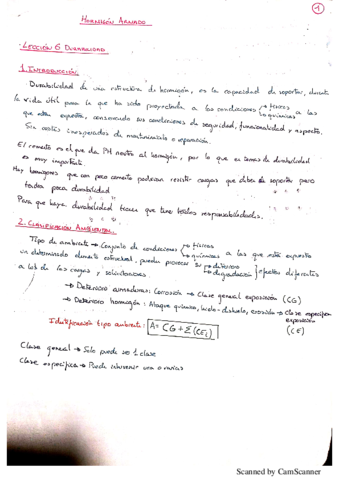 1
HORMIGÓN ARMADO
LECCIÓN 6 DURABILIDAD
1. INTRODUCCIÓN
Durabilidad de una estructura de hormigón, es la capacidad de soportar, durante
la vida útil para la que ha sido proyectada a las condiciones → físicas a las
→ químicas
que está expuesta, conservando sus condiciones de seguridad, funcionalidad y aspecto.
Sin costes inesperados de mantenimiento o reparación.
El cemento es el que da PH neutro al hormigón, por lo que en temas de durabilidad
es muy importante.
Hay hormigones que con poco cemento podrían resistir cargas que deben de soportar pero
tendrán poca durabilidad.
Para que haya durabilidad tienen que tener todos responsabilidades.
2. CLASIFICACIÓN AMBIENTAL
Tipo de ambiente → Conjunto de condiciones → físicas
→ químicas a las que está expuesto
un determinado elemento estructural, pueden provocar su → deterioro
→ degradación } efectos diferentes
a los de las cargas y solicitaciones
→ Deterioro armaduras: Corrosión → Clase general exposición (CG)
→ Deterioro hormigón: Ataque químico, hielo-deshielo, erosión → Clase específica
exposición
(CE)
Identificación tipo ambiente: A = CG + Σ (CEi)
Clase general → Solo puede ser 1 clase
Clase específica → Puede intervenir una o varias
Scanned by CamScanner